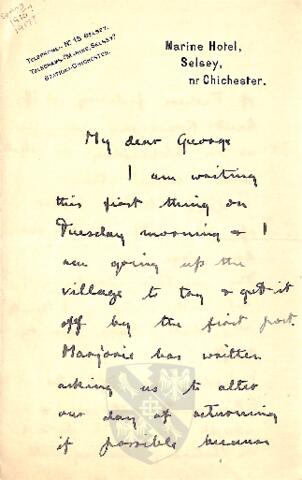 Spring
1916
TELEPHONE: Nº 15 SELSEY.
TELEGRAMS: MARINE, SELSEY.
STATION: CHICHESTER.
Marine Hotel,
Selsey,
nr Chichester.
My dear George
I am writing
this first thing on
Tuesday morning & I
am going up the
village to try & get it
off by the first post.
Marjorie has written
asking us to alter
our day of returning
if possible because